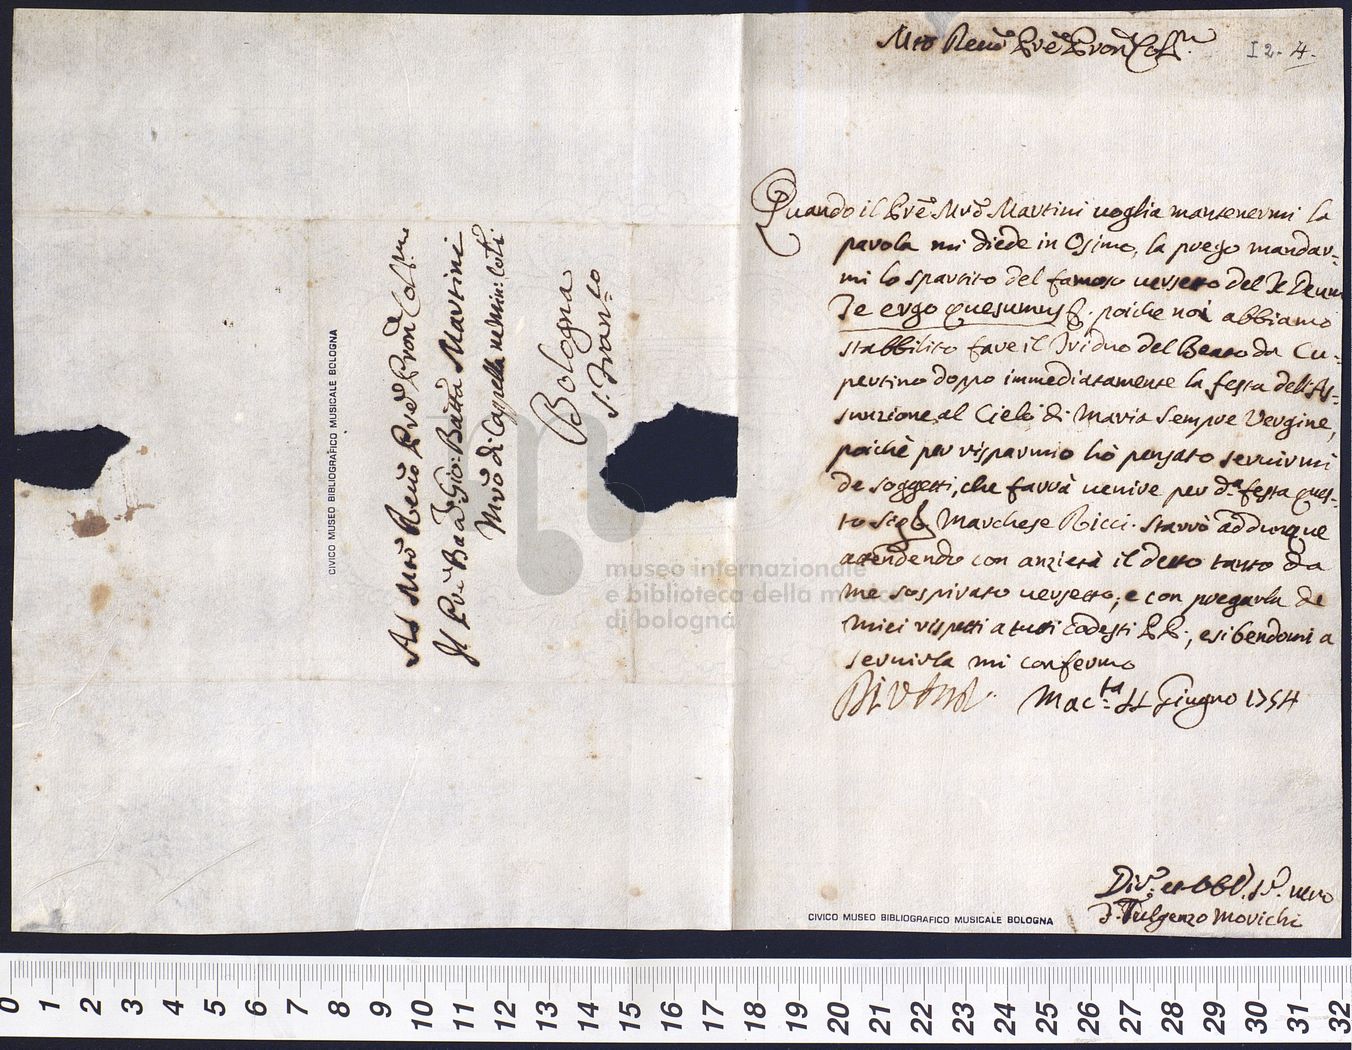 Mto Revdo Pre Pron Colmo
I 2. 4.
Quando il Pre Mro Martini voglia mantenermi la
parola mi diede in Osimo, la prego mandar=
mi lo spartito del famoso versetto del Te Deum
Te ergo quesumus &. poiche noi abbiamo
stabbilito fare il Triduo del Beato da Cu=
pertino doppo immediatamente la festa dell'As=
sunzione al Cielo di Maria Sempre Vergine,
poichè per risparmio hò pensato servirmi
de soggetti, che farrà venire per da festa ques=
to Sigr Marchese Ricci. Starrò addunque
attendendo con anzietà il detto tanto da
me sospirato versetto, e con pregarla de
miei rispetti a tutti codesti PP., esibendomi a
servirla mi confermo
Macta 11 Giugno 1754
Divo et Obbl. Sre vero
F. Fulgenzo Morichi
Al Mto Revdo Pre Pron Colmo
Il Pre Bada Gio: Batta Martini
Mro di Capella ne Min: Coti
Bologna
S. Franco
CIVICO MUSEO BIBLIOGRAFICO MUSICALE BOLOGNA
CIVICO MUSEO BIBLIOGRAFICO MUSICALE BOLOGNA
museo internazionale
e biblioteca della musica
di bologna
0 1 2 3 4 5 6 7 8 9 10 11 12 13 14 15 16 17 18 19 20 21 22 23 24 25 26 27 28 29 30 31 32